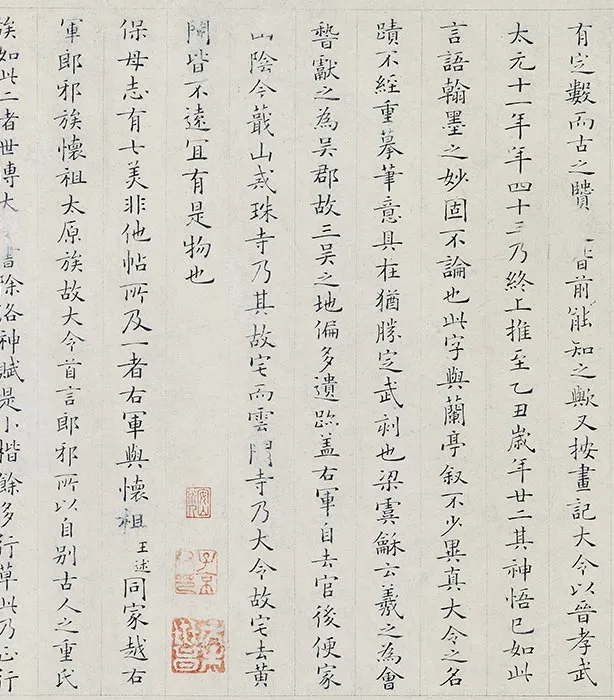 有定數而古之賾前能知之歟又按畫記大令以晉孝武
太元十一年年四十三乃終上推至乙丑歲年廿二其神悟已如此
言語翰墨之妙固不論也此字與蘭亭叙不少異真大令之名
蹟不經重摹筆意具在猶勝定武刻也梁虞龢云羲之為會
稽獻之為吳郡故三吳之地偏多遺跡蓋右軍自去官後便家
山陰今蕺山戒珠寺乃其故宅而雲門寺乃大令故宅去黃
閍皆不遠宜有是物也
保母志有七美非他帖所及一者右軍與懷祖王述同家越右
軍郎邪族懷祖太原族故大令首言郎邪所以自別古人之重氏
族如此二者世傳大書除洛神賦是小楷餘多行草此乃正行